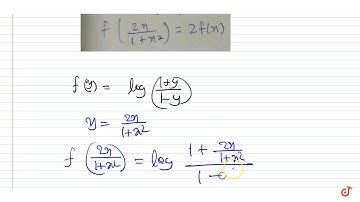 f(2x/(1+x²)) = 2f(x)
f(y) = log((1+y)/(1-y))
y = 2x/(1+x²)
f(2x/(1+x²)) = log (1 + 2x/(1+x²))/(1 -